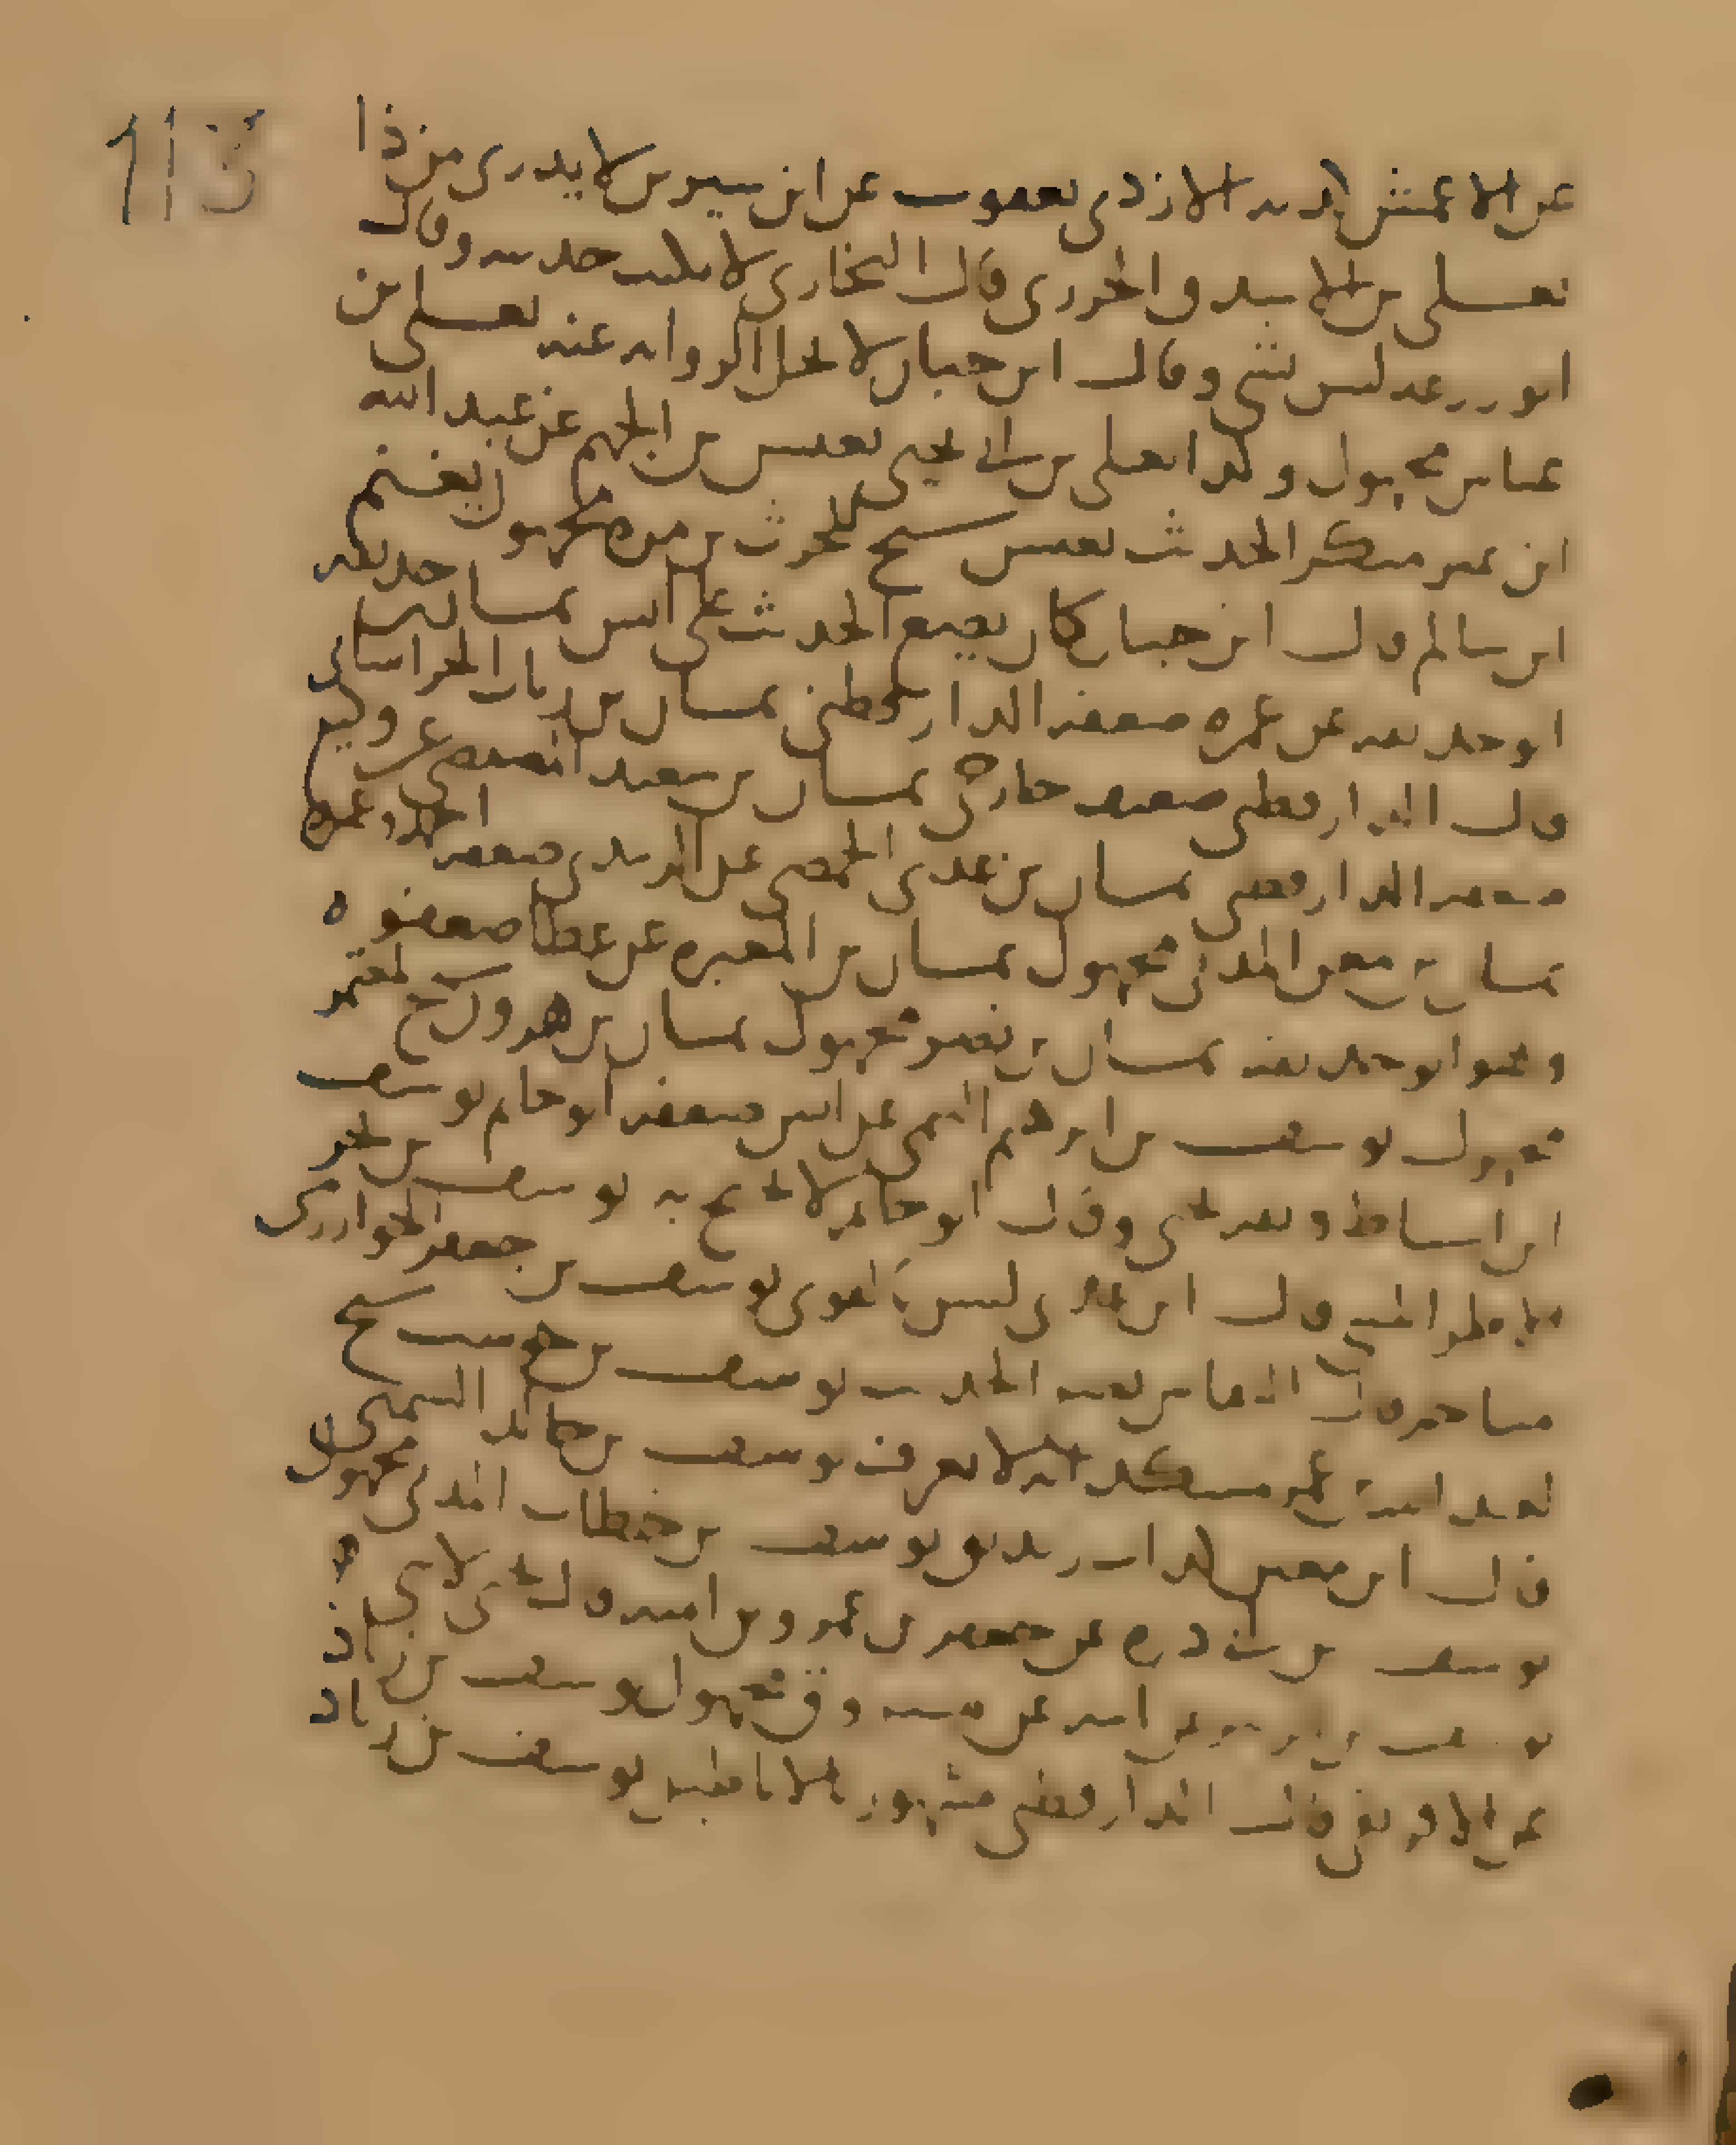 113
عن الاعمش كذبه الازدي يعقوب عن ابن سيرين لا يدرى من ذا
يعلى بن الاشدق الجزري قال البخاري لا يكتب حديثه وقال
ابو زرعه ليس بشي وقال ابن حبان لا تحل الروايه عنه يعلى بن
عباس مجهول وكذا يعلى بن ابي يحيى يعيش بن الجهم عن عبد الله
ابن نمير منكر الحديث يعيش شيخ للحرث بن مره مجهول يغنم
ابن سالم قال ابن حبان كان يضع الحديث على انس يمان
ابو حذيفه عن عمره ضعفه الدارقطني يمان بن رباب الخراساني
قال الدارقطني ضعيف خارجي يمان بن سعيد المصيصي عن وكيع
ضعفه الدارقطني يمان بن عدي الحمصي عن الزبيدي ضعفه احمد
يمان بن معن المدني مجهول يمان بن المغيره عن عطا ضعفوه
يمان بن نصر مجهول يمان بن هرون شيخ لمعتمر
مجهول يوسف بن ابرهيم التيمي عن انس ضعفه ابو حاتم يوسف
ابن اسباط وثقه يحيى وقال ابو حاتم لا يحتج به يوسف بن بحر
قال ابن عدي ليس بالقوي يوسف بن جعفر الخوارزمي
متاخر قال النقاش يضع الحديث يوسف بن حوشب شيخ
لا يعرف يوسف بن خالد السمتي
قال ابن معين كذاب زنديق يوسف بن خطاب المدني مجهول
يوسف بن ابي ذره عن جعفر بن عمرو بن اميه قال يحيى لا شي
يوسف بن عن ابيه عن مسروق مجهول يوسف بن زياد
عن الافريقي قال الدارقطني مشهور بالاباطيل يوسف بن زياد